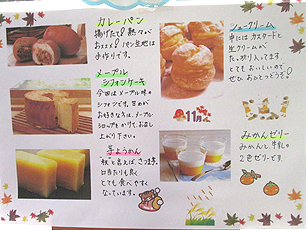 カレーパン
揚げたて!熱々が
おススメ!パン生地は
手作りです。
メープル
シフォンケーキ
今回はメープル味の
シフォンです。甘めが
お好きな方は、メープル
シロップをかけて、お召し
上がり下さい。
芋ようかん
"秋"と言えば、さつま芋
口当たりも良く
とても食べやすく
なっています。
シュークリーム
中にはカスタードと
生クリームが
たっぷり入ってます
とてもおいしいので
ぜひおひとつどうぞ!
11月
みかんゼリー
みかんと、牛乳の
2色ゼリーです。